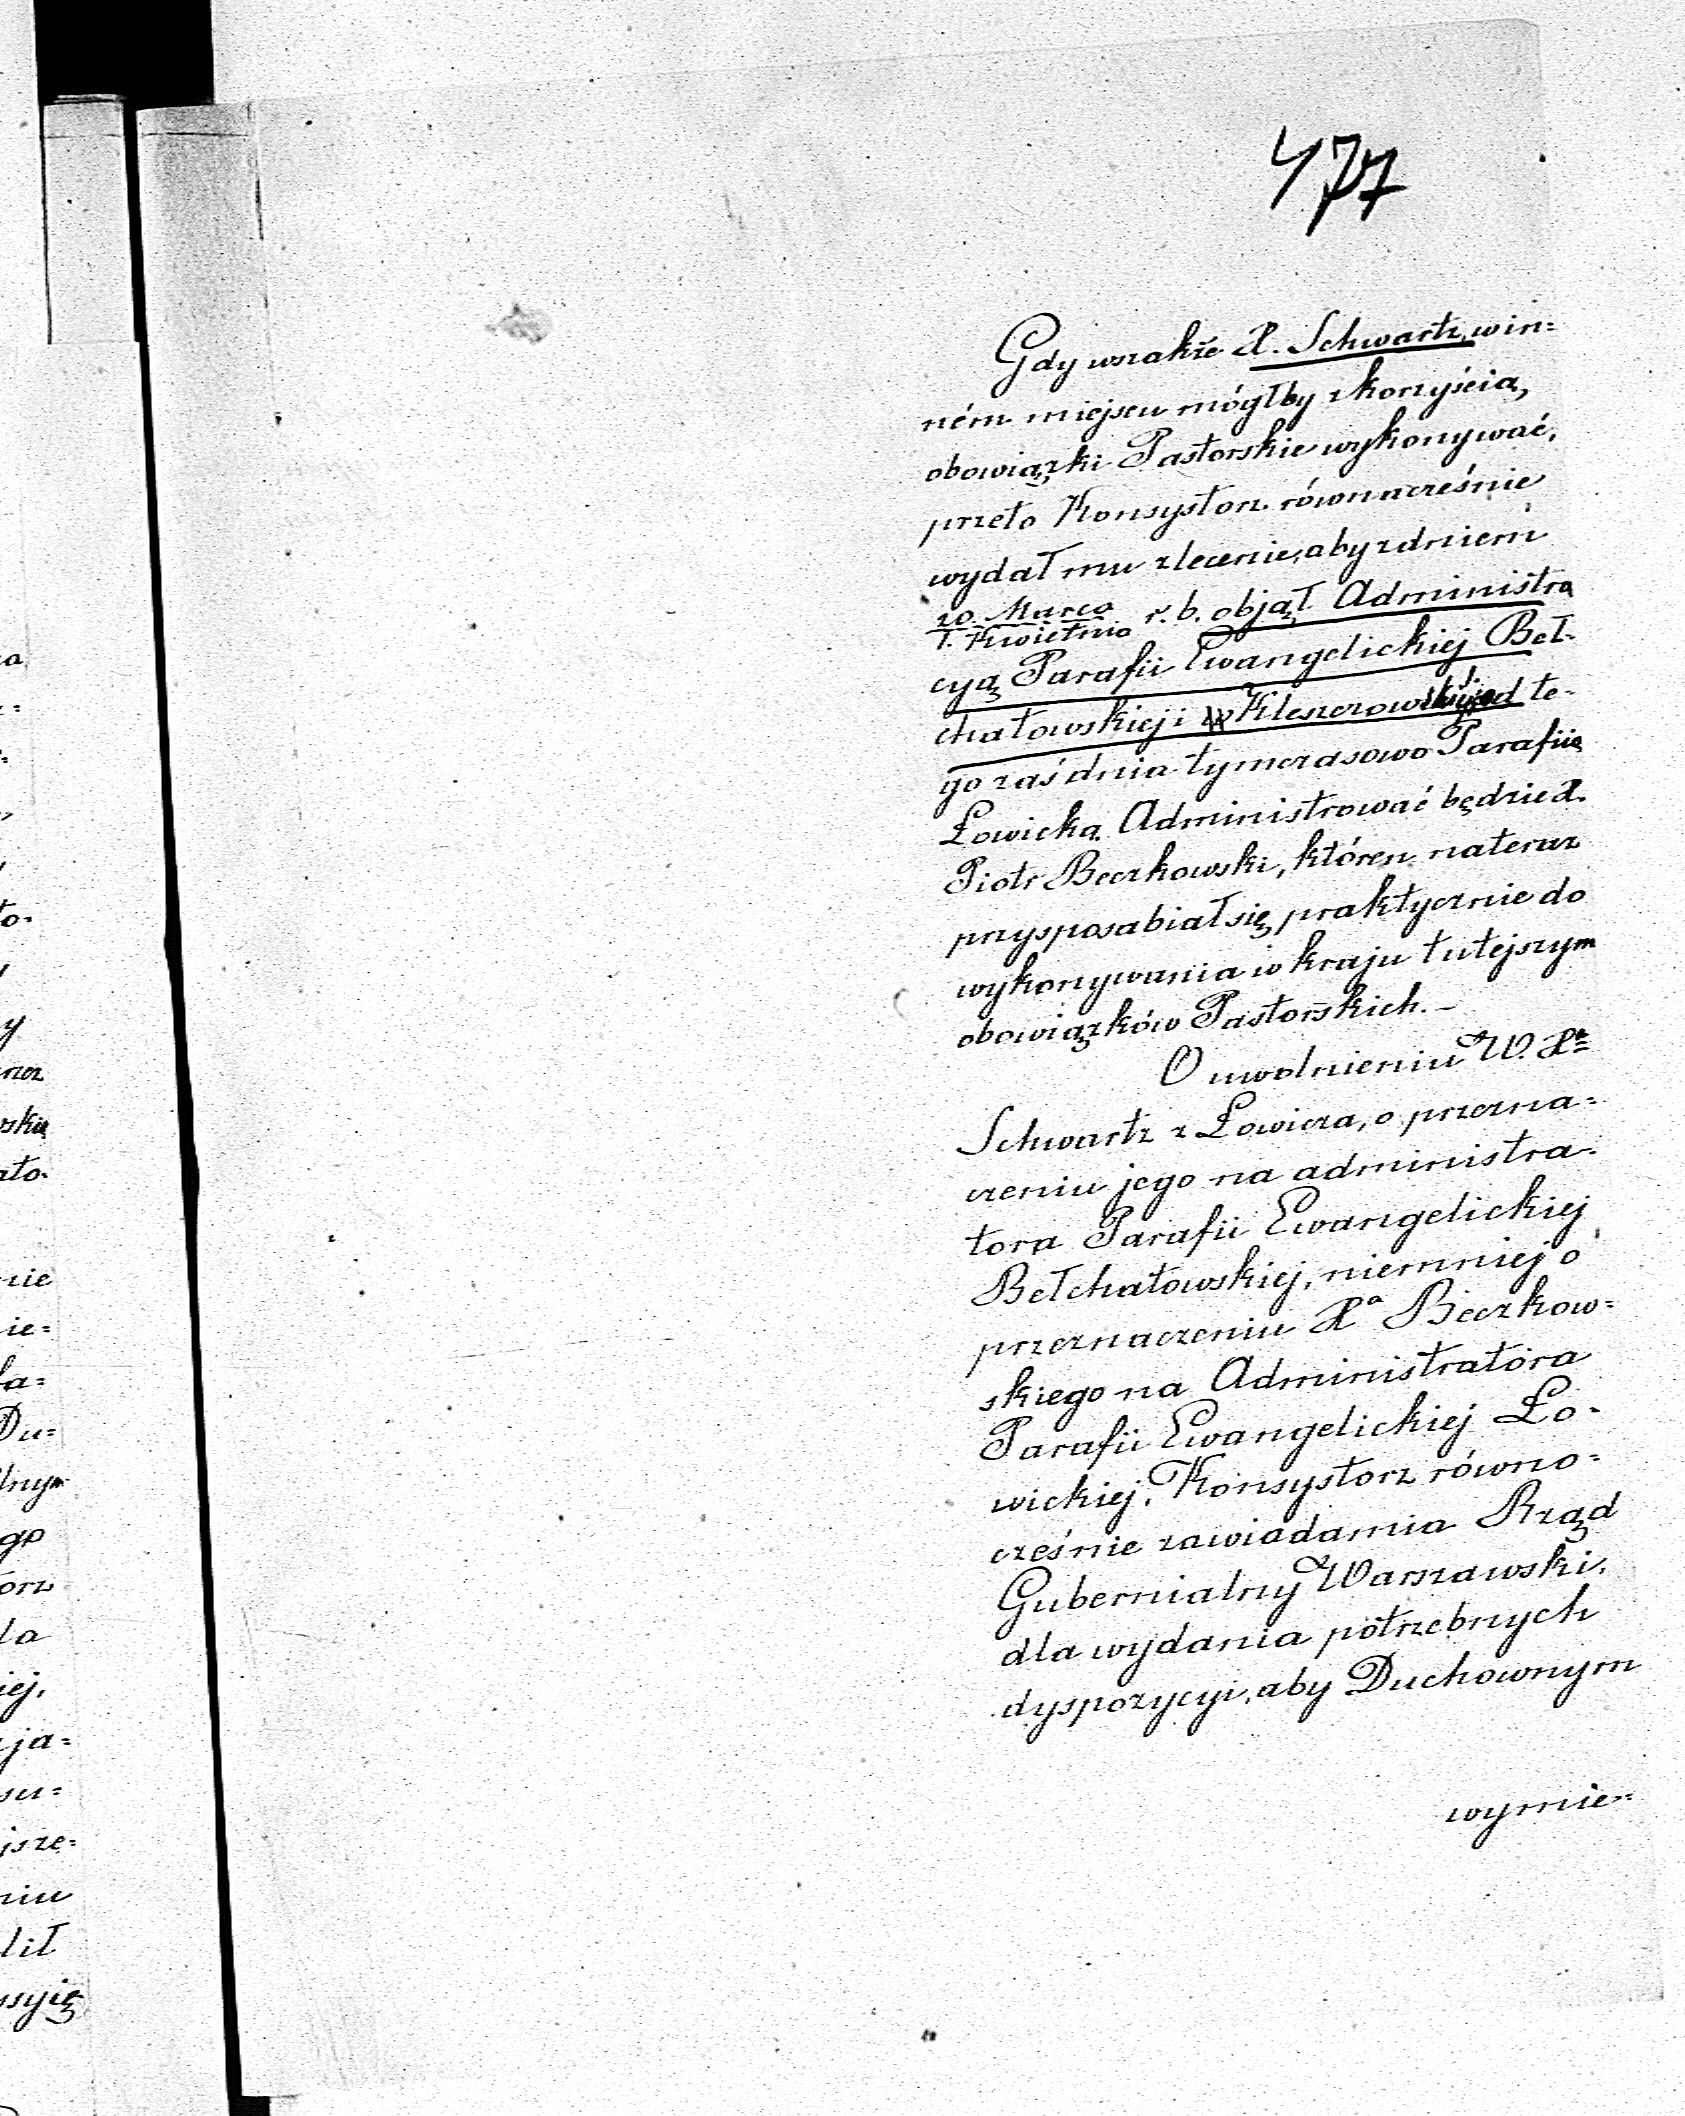 477
Gdy wszakże X. Schwartz, w in=
ném miejscu mógłby z korzyścią,
obowiązki Pastorskie wykonywać,
przeto Konsystorz równocześnie
wydał mu zlecenie, aby z dniem
20 Marca
1. Kwietnia r. b. objął Administra
cyą Parafii Ewangelickiej Beł-
chatowskiej i w Kleszczowskiej, od te-
go zaś dnia tymczasowo Parafiię
Łowicką Administrować będzie X.
Piotr Beczkowski, któren nateraz
przysposabiał się praktycznie do
wykonywania w kraju tutejszym
obowiązków Pastorskich. –
O uwolnieniu W. Xa
Schwartz z Łowicza, o przezna=
czeniu jego na administra-
tora Parafii Ewangelickiej
Bełchatowskiej, niemniej o
przeznaczeniu Xa Beczkow=
skiego na Administratora
Parafii Ewangelickiej Ło-
wickiej, Konsystorz równo=
cześnie zawiadamia Rząd
Gubernialny Warszawski,
dla wydania potrzebnych
dyspozycyi, aby Duchownym
wymie=